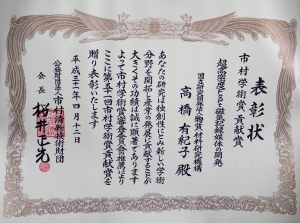 表彰状
市村学術賞 貢献賞
超高密度FePt磁気記録媒体の開発
国立研究開発法人物質・材料研究機構
高橋有紀子殿
あなたの研究は独創性にとみ新しい学術
分野を開拓し産業の発展に貢献するところが
大きくその功績は誠に顕著であります
よって市村学術賞審査委員会の推薦により
ここに第五十一回市村学術賞貢献賞を
贈り表彰いたします
平成三十一年四月十二日
公益財団法人市村清新技術財団
会長 桜井正光